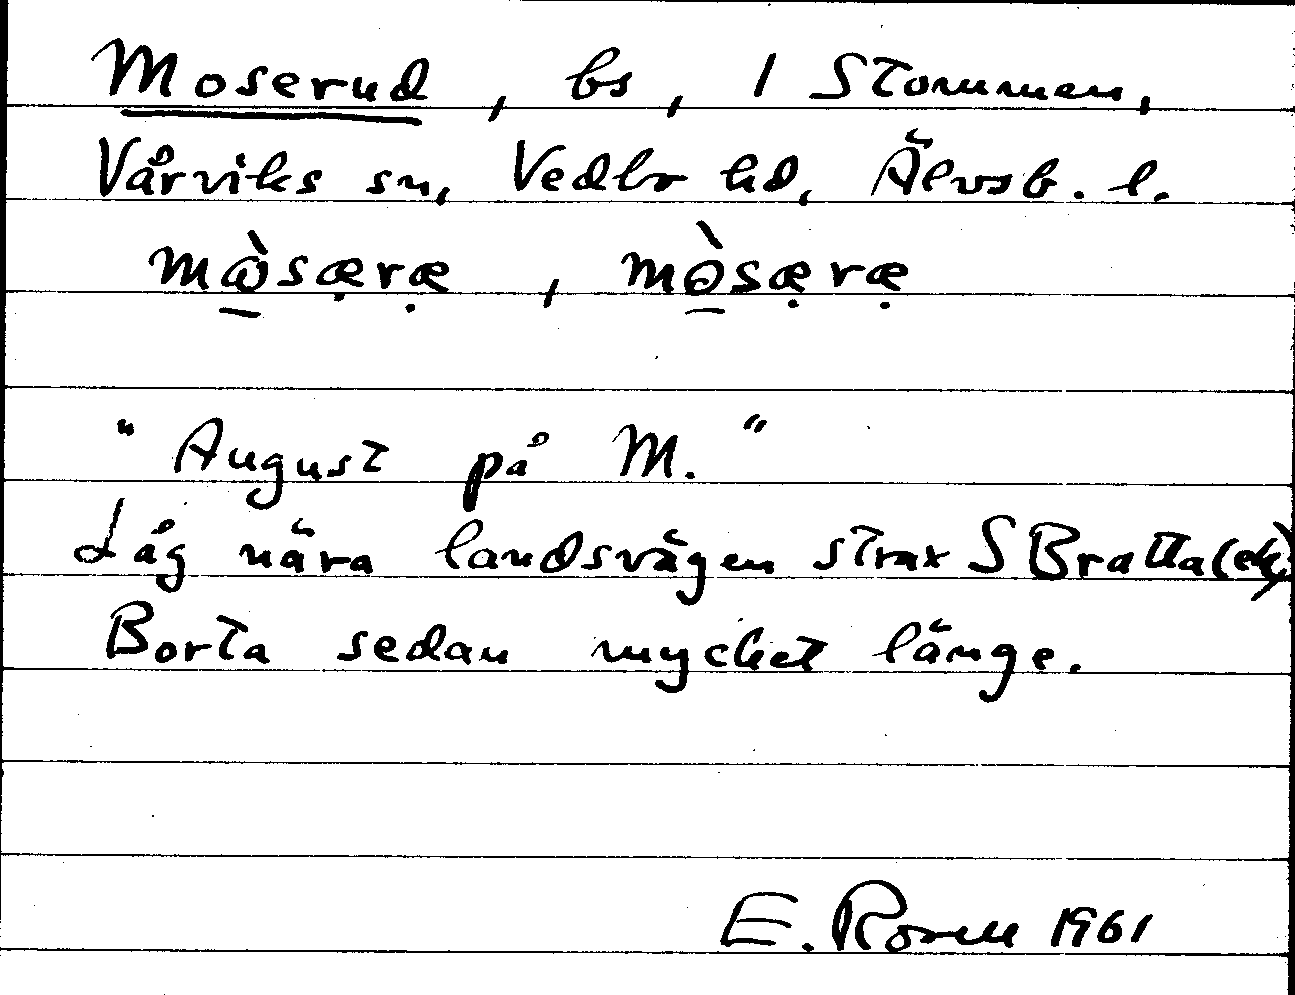 Moserud, bs, 1 Stommen,
Vårviks sn, Vedbo hd, Älvsb. l.
mɷ̠̀sæ̣ræ̣, mò̠sæ̣ræ̣
"August på M."
Låg nära landsvägen strax S Bratta(ek)
Borta sedan mycket länge.
E. Rosell 1961